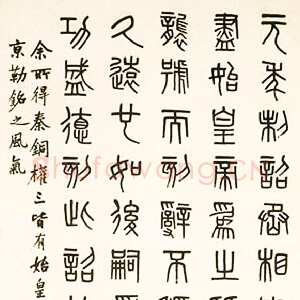 元年制詔丞相
盡始皇帝爲之
襲號而刻辭不
久遠也如後嗣爲
功盛德刻此詔
余所得秦銅權三皆有始皇
京勒銘之風氣